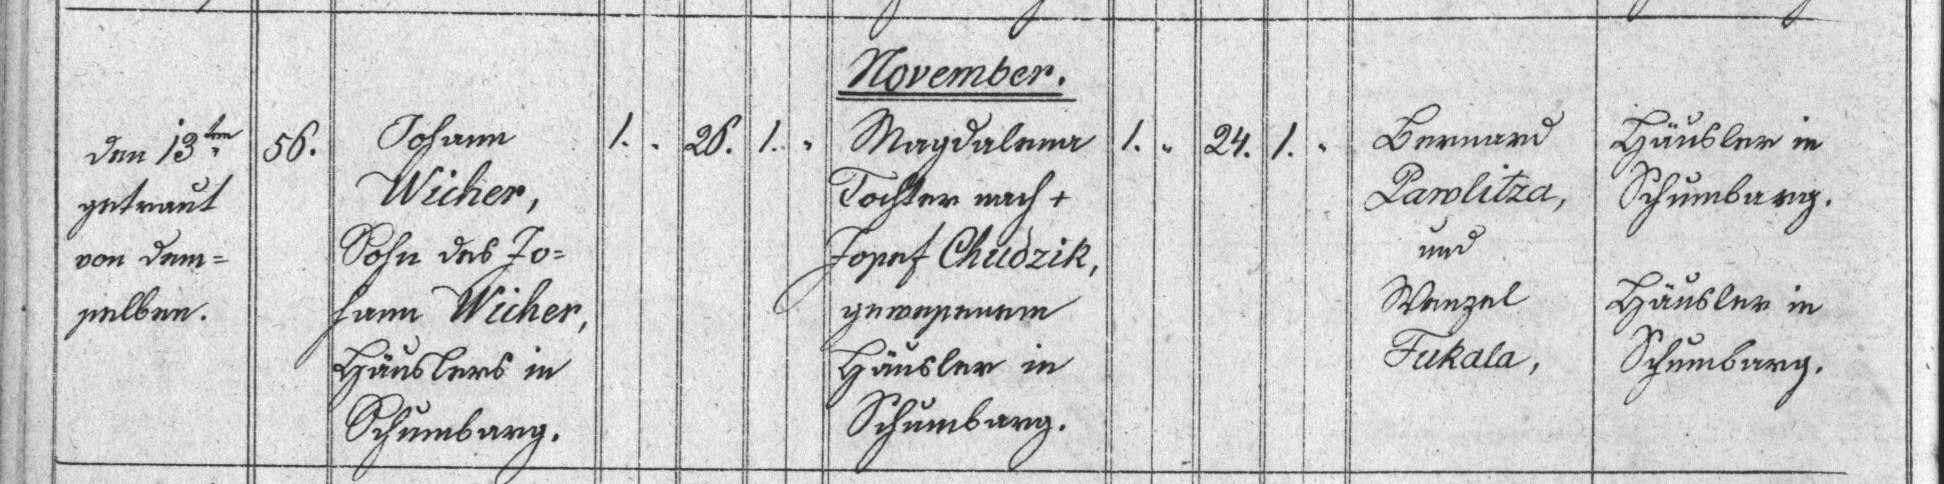 November.
den 13ten
getraut
von dem=
selben.
56.
Johann
Wicher,
Sohn des Jo=
hann Wicher,
Häuslers in
Schumbarg.
1. „ 26. 1. „
Magdalena
Tochter nach +
Josef Chudzik,
gewesenem
Häusler in
Schumbarg.
1. „ 24. 1. „
Bernard
Pawlitza,
und
Wenzel
Fukala,
Häusler in
Schumbarg.
Häusler in
Schumbarg.